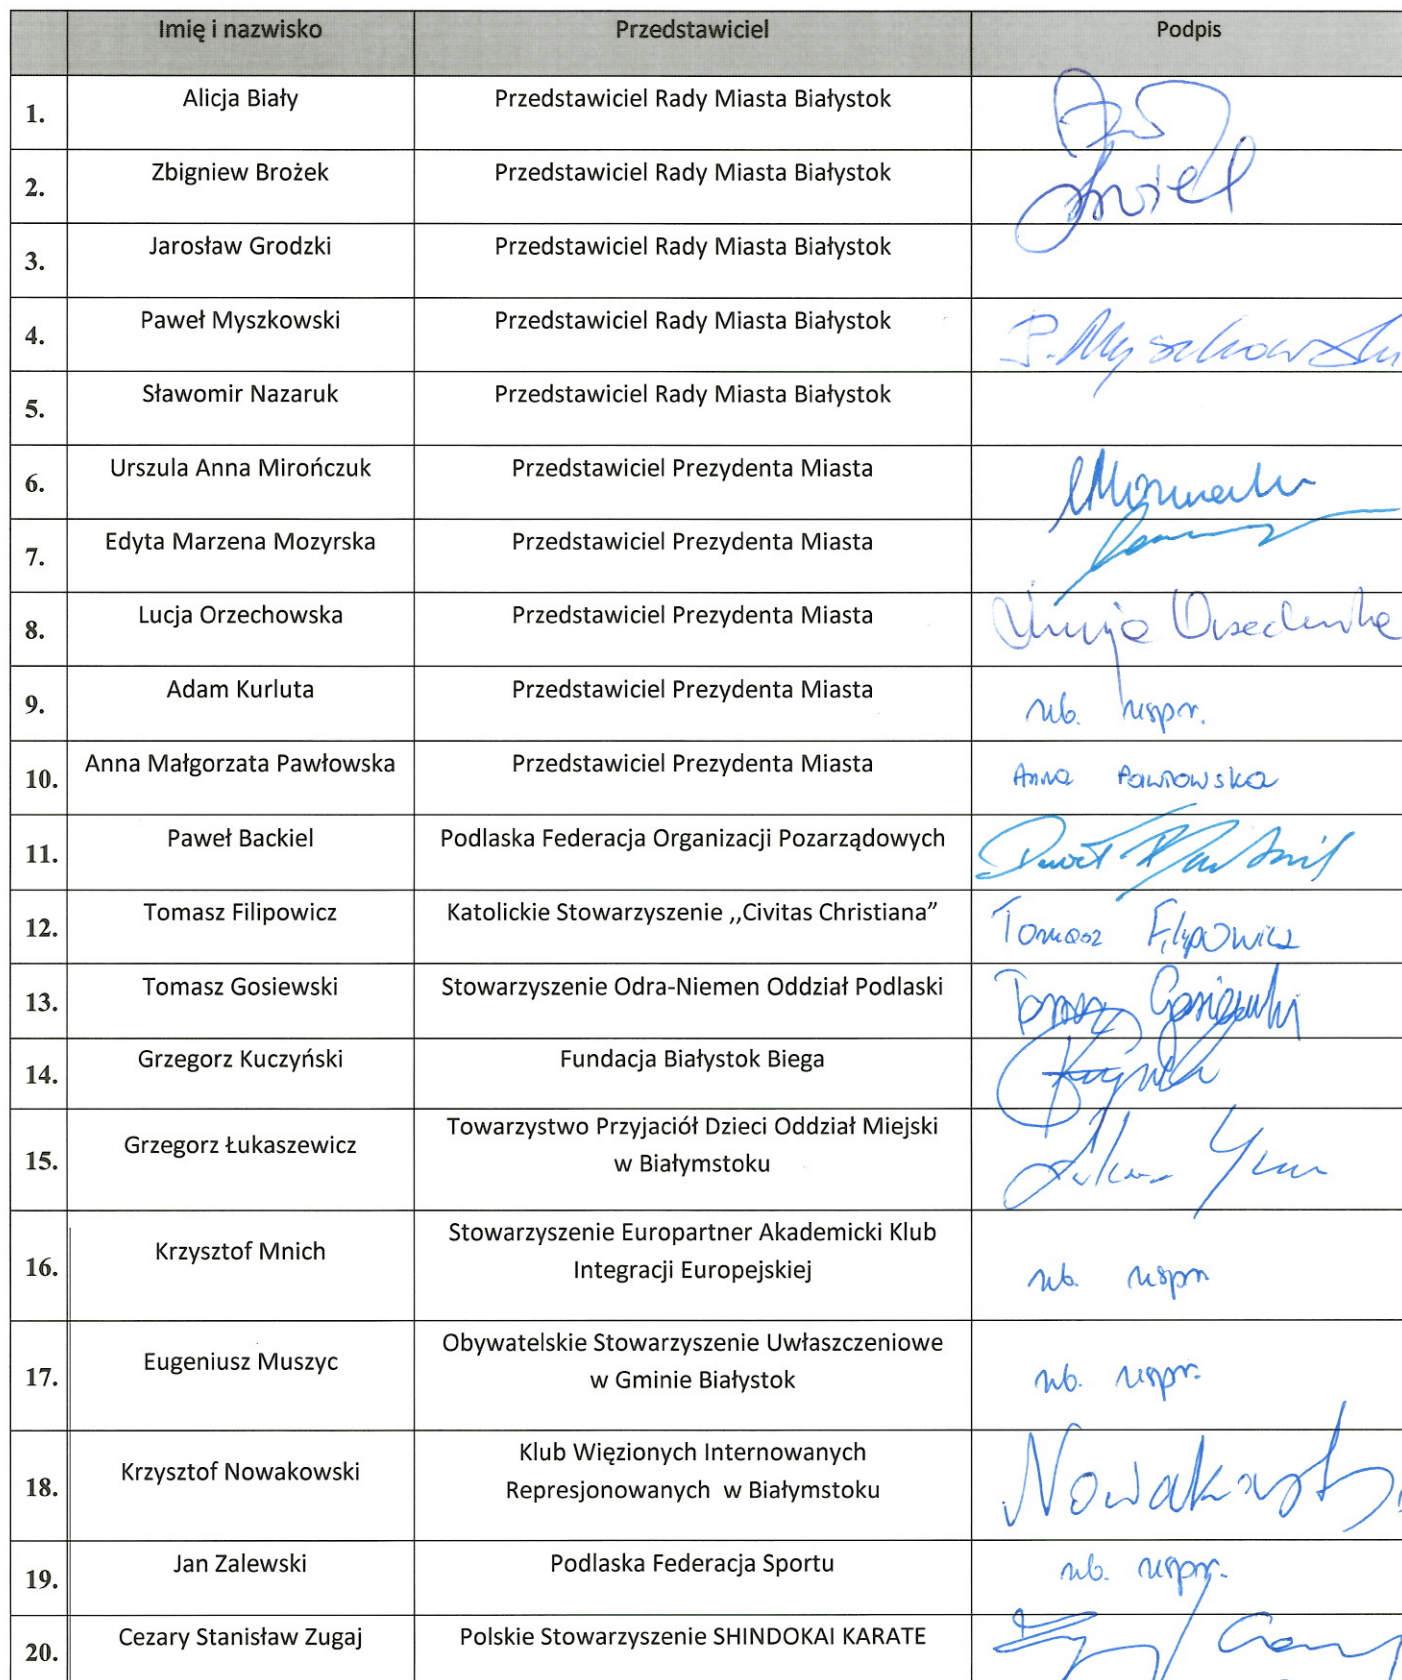 Imię i nazwisko Przedstawiciel Podpis
1. Alicja Biały Przedstawiciel Rady Miasta Białystok
2. Zbigniew Brożek Przedstawiciel Rady Miasta Białystok
3. Jarosław Grodzki Przedstawiciel Rady Miasta Białystok
4. Paweł Myszkowski Przedstawiciel Rady Miasta Białystok P. Myszkowski
5. Sławomir Nazaruk Przedstawiciel Rady Miasta Białystok
6. Urszula Anna Mirończuk Przedstawiciel Prezydenta Miasta
7. Edyta Marzena Mozyrska Przedstawiciel Prezydenta Miasta
8. Lucja Orzechowska Przedstawiciel Prezydenta Miasta
9. Adam Kurluta Przedstawiciel Prezydenta Miasta nb. uspr.
10. Anna Małgorzata Pawłowska Przedstawiciel Prezydenta Miasta Anna Pawłowska
11. Paweł Backiel Podlaska Federacja Organizacji Pozarządowych
12. Tomasz Filipowicz Katolickie Stowarzyszenie ,,Civitas Christiana” Tomasz Filipowicz
13. Tomasz Gosiewski Stowarzyszenie Odra-Niemen Oddział Podlaski Tomasz Gosiewski
14. Grzegorz Kuczyński Fundacja Białystok Biega
15. Grzegorz Łukaszewicz Towarzystwo Przyjaciół Dzieci Oddział Miejski
w Białymstoku
16. Krzysztof Mnich Stowarzyszenie Europartner Akademicki Klub
Integracji Europejskiej nb. uspr
17. Eugeniusz Muszyc Obywatelskie Stowarzyszenie Uwłaszczeniowe
w Gminie Białystok nb. uspr.
18. Krzysztof Nowakowski Klub Więzionych Internowanych
Represjonowanych w Białymstoku Nowakowski
19. Jan Zalewski Podlaska Federacja Sportu nb. uspr.
20. Cezary Stanisław Zugaj Polskie Stowarzyszenie SHINDOKAI KARATE